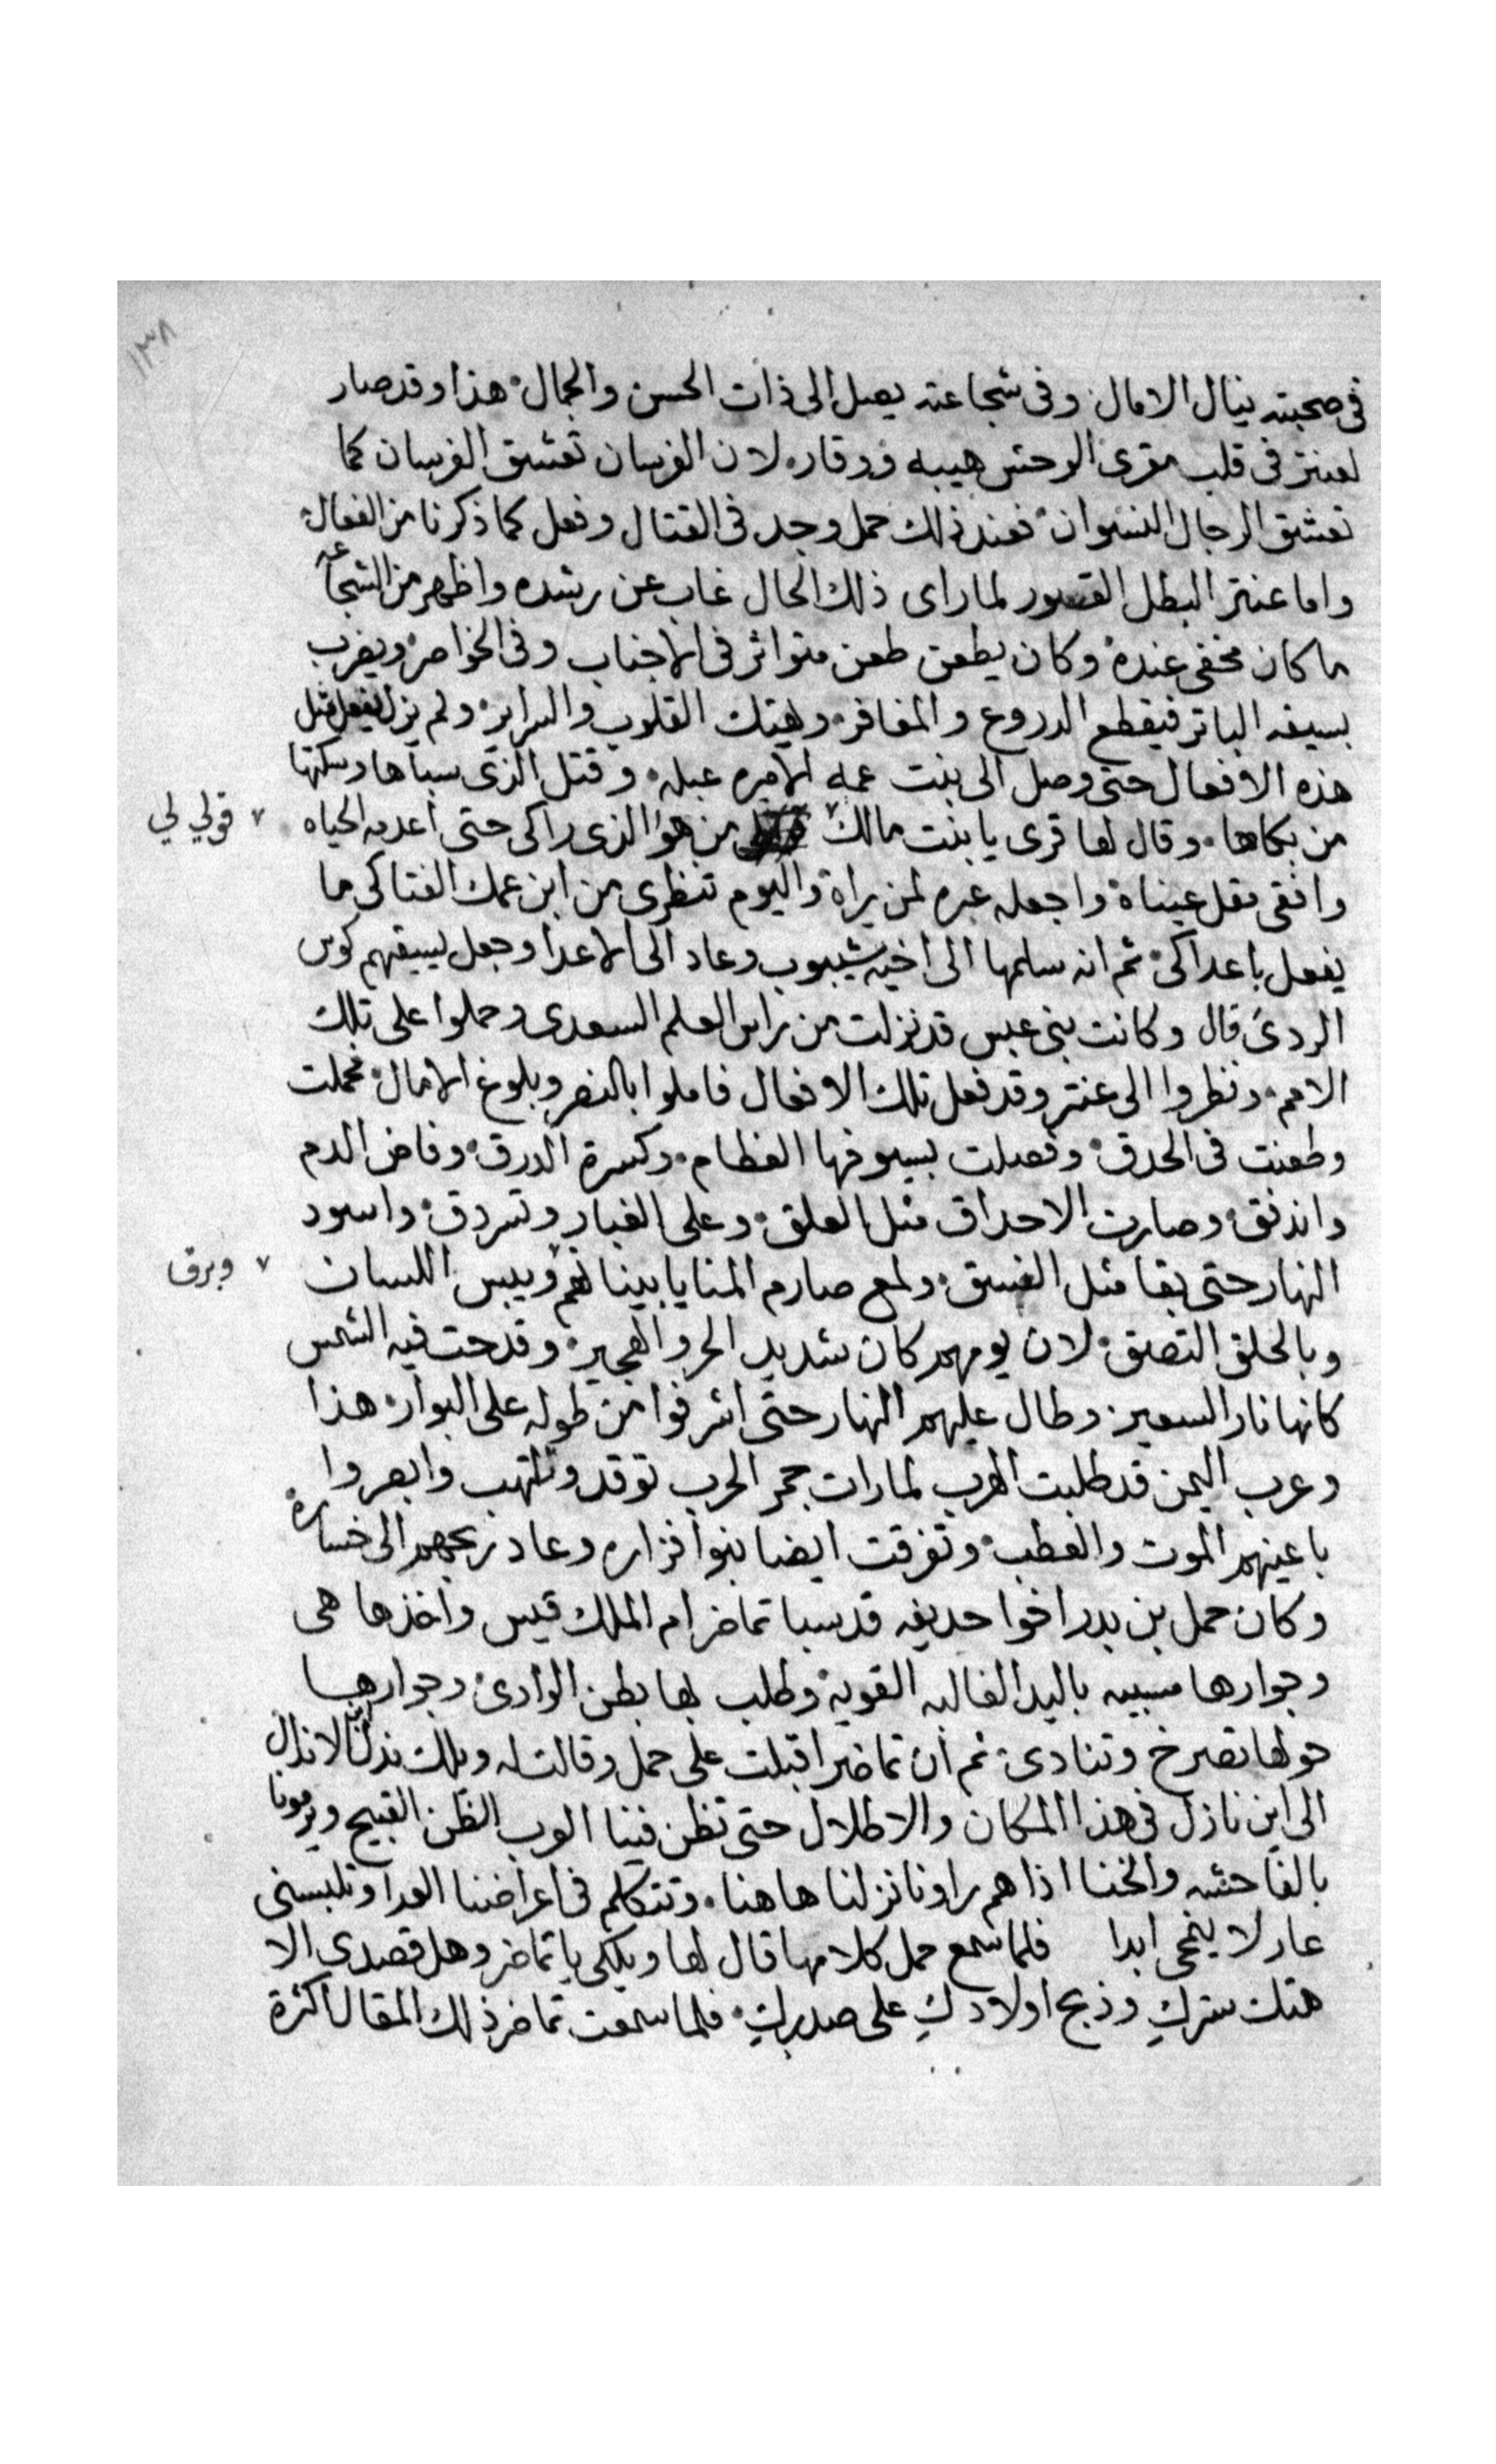 ١٣٨
فى صحبته ينال الامال. وفى شجاعته يصل الى ذات الحسن والجمال. هذا وقد صار
لعنتر فى قلب مقرى الوحش هيبه ووقار. لان الفرسان تعشق الفرسان كما
تعشق الرجال النسوان. فعند ذلك حمل وجد فى القتال وفعل كما ذكرنا من الفعال.
واما عنتر البطل القسور لما راى ذلك الحال غاب عن رشده واظهر من الشجاعه
ما كان مخفى عنده. وكان يطعن طعن متواتر فى الاجناب وفى الخواصر ويضرب
بسيفه الباتر فيقطع الدروع والمغافر. ويهتك القلوب والسراير. ولم يزل يفعل مثل
هذه الافعال حتى وصل الى بنت عمه الاميره عبله. وقتل الذى سباها وسكتها
من بكاها. وقال لها قرى يا بنت مالك ٧ من هو الذى راكى حتى اعدمه الحياه
٧ قولي لي
وافقى مقل عيناه واجعله عبره لمن يراه واليوم تنظرى من ابن عمك الفتاكى ما
يفعل باعداكى. ثم انه سلمها الى اخيه شيبوب وعاد الى الاعدا وجعل يسيقهم كوس
الردى قال وكانت بنى عبس قد نزلت من راس العلم السعدى وحملوا على تلك
الامم. ونظروا الى عنتر وقد فعل تلك الافعال فاملوا بالنصر وبلوغ الامال. فحملت
وطعنت فى الحدق. وفصلت بسيوفها العظام. وكسرة الدرق. وفاض الدم
واندفق. وصارت الاحداق مثل العلق. وعلى الغبار وتسردق. واسود
النهار حتى بقا مثل الغسق. ولمع صارم المنايا بيناهم ٧ ويبس اللسان
٧ وبرق
وبالحلق التصق. لان يومهم كان شديد الحر والهجير. وقدحت فيه الشمس
كانها نار السعير. وطال عليهم النهار حتى اشرفوا من طوله على البوار. هذا
وعرب اليمن قد طلبت الهرب لما رات جمر الحرب توقد وتلتهب وابصروا
باعينهم الموت والعطب. وتفرقت ايضا بنوا فزاره وعاد ربحهم الى خساره.
وكان حمل بن بدر اخوا حديفه قد سبا تماضر ام الملك قيس واخذها هى
وجوارها مسبيه باليد الغالبه القويه. وطلب بها بطن الوادى. وجوارها
حولها تصرخ وتنادى. ثم ان تماضر اقبلت على حمل وقالت له ويلك يا نذل الانذال
الى اين نازل فى هذا المكان والاطلال حتى تظن فينا العرب الظن القبيح ويرمونا
بالفاحشه والخنا اذا هم راونا نزلنا هاهنا. وتتكلم فى اعراضنا العدا وتلبسنى
عار لا ينمحى ابدا فلما سمع حمل كلامها قال لها ويلكى يا تماضر وهل قصدى الا
هتك سترك وذبح اولادك على صدرك. فلما سمعت تماضر ذلك المقال اكثرة